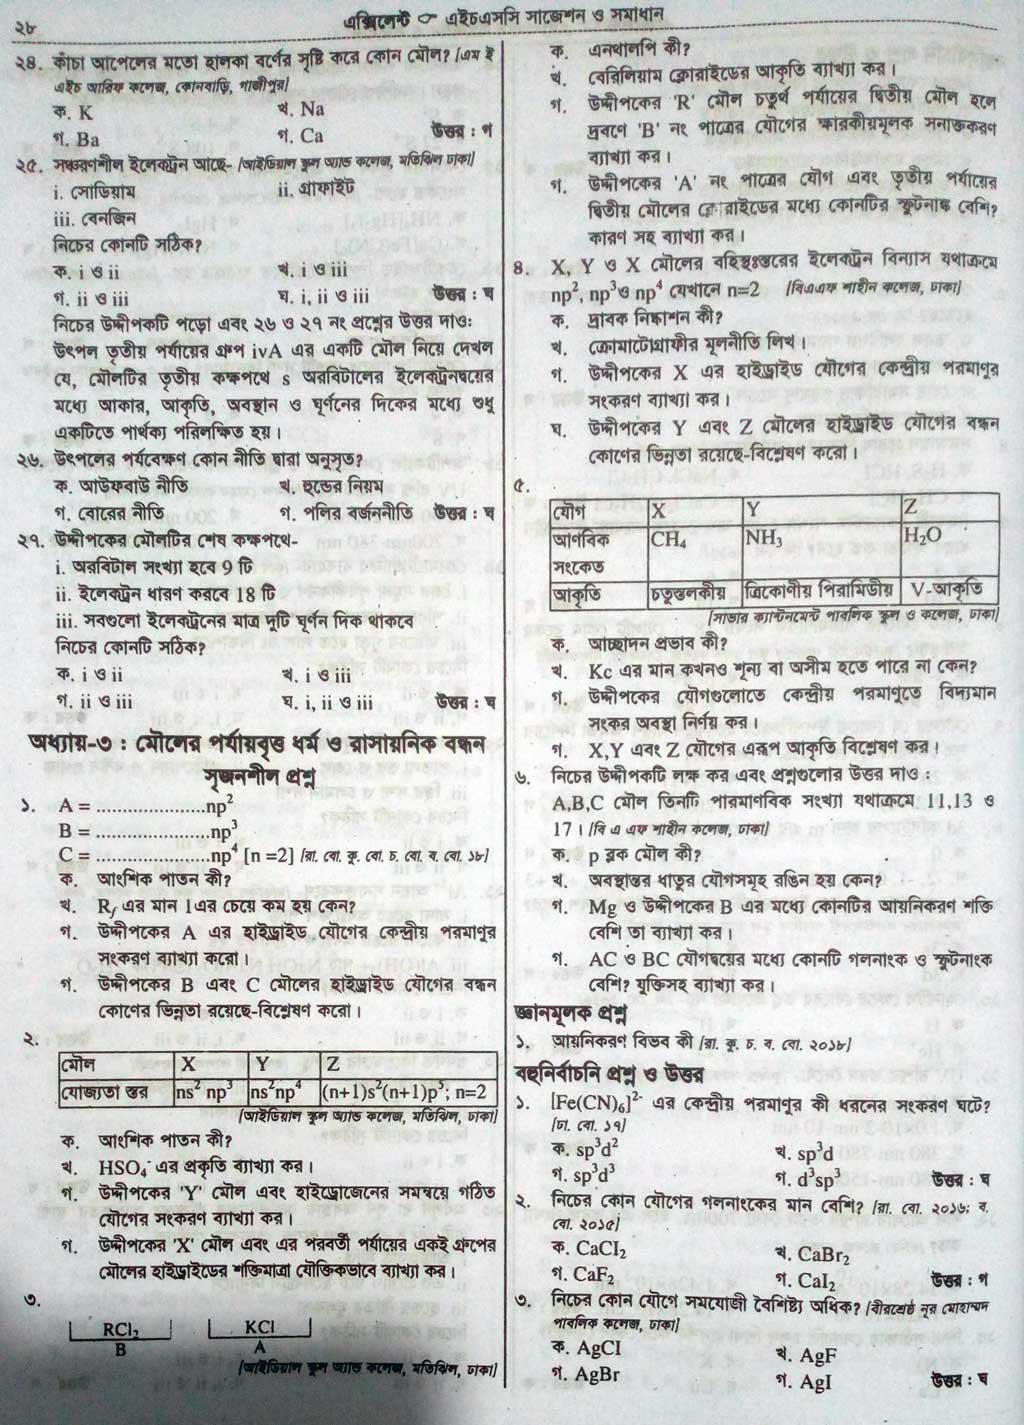 ২৮
এক্সিলেন্ট ☞ এইচএসসি সাজেশন ও সমাধান
২৪. কাঁচা আপেলের মতো হালকা বর্ণের সৃষ্টি করে কোন মৌল? [এম ই
এইচ আরিফ কলেজ, কোনবাড়ি, গাজীপুর]
ক. K খ. Na
গ. Ba গ. Ca উত্তর : গ
২৫. সঞ্চরণশীল ইলেকট্রন আছে- [আইডিয়াল স্কুল অ্যান্ড কলেজ, মতিঝিল ঢাকা]
i. সোডিয়াম ii. গ্রাফাইট
iii. বেনজিন
নিচের কোনটি সঠিক?
ক. i ও ii খ. i ও iii
গ. ii ও iii ঘ. i, ii ও iii উত্তর : ঘ
নিচের উদ্দীপকটি পড়ো এবং ২৬ ও ২৭ নং প্রশ্নের উত্তর দাও:
উৎপল তৃতীয় পর্যায়ের গ্রুপ ivA এর একটি মৌল নিয়ে দেখল
যে, মৌলটির তৃতীয় কক্ষপথে s অরবিটালের ইলেকট্রনদ্বয়ের
মধ্যে আকার, আকৃতি, অবস্থান ও ঘূর্ণনের দিকের মধ্যে শুধু
একটিতে পার্থক্য পরিলক্ষিত হয়।
২৬. উৎপলের পর্যবেক্ষণ কোন নীতি দ্বারা অনুসৃত?
ক. আউফবাউ নীতি খ. হুন্ডের নিয়ম
গ. বোরের নীতি গ. পলির বর্জননীতি উত্তর : ঘ
২৭. উদ্দীপকের মৌলটির শেষ কক্ষপথে-
i. অরবিটাল সংখ্যা হবে 9 টি
ii. ইলেকট্রন ধারণ করবে 18 টি
iii. সবগুলো ইলেকট্রনের মাত্র দুটি ঘূর্ণন দিক থাকবে
নিচের কোনটি সঠিক?
ক. i ও ii খ. i ও iii
গ. ii ও iii ঘ. i, ii ও iii উত্তর : ঘ
অধ্যায়-৩ : মৌলের পর্যায়বৃত্ত ধর্ম ও রাসায়নিক বন্ধন
সৃজনশীল প্রশ্ন
১. A = ......................np²
B = ......................np³
C = ......................np⁴ [n =2] [রা. বো. কু. বো. চ. বো. ব. বো. ১৮]
ক. আংশিক পাতন কী?
খ. R_f এর মান 1এর চেয়ে কম হয় কেন?
গ. উদ্দীপকের A এর হাইড্রাইড যৌগের কেন্দ্রীয় পরমাণুর
সংকরণ ব্যাখ্যা করো।
গ. উদ্দীপকের B এবং C মৌলের হাইড্রাইড যৌগের বন্ধন
কোণের ভিন্নতা রয়েছে-বিশ্লেষণ করো।
২.
মৌল X Y Z
যোজ্যতা স্তর ns² np³ ns²np⁴ (n+1)s²(n+1)p⁵; n=2
[আইডিয়াল স্কুল অ্যান্ড কলেজ, মতিঝিল, ঢাকা]
ক. আংশিক পাতন কী?
খ. HSO₄⁻ এর প্রকৃতি ব্যাখ্যা কর।
গ. উদ্দীপকের 'Y' মৌল এবং হাইড্রোজেনের সমন্বয়ে গঠিত
যৌগের সংকরণ ব্যাখ্যা কর।
গ. উদ্দীপকের 'X' মৌল এবং এর পরবর্তী পর্যায়ের একই গ্রুপের
মৌলের হাইড্রাইডের শক্তিমাত্রা যৌক্তিকভাবে ব্যাখ্যা কর।
৩.
RCl₂ KCl
B A
[আইডিয়াল স্কুল অ্যান্ড কলেজ, মতিঝিল, ঢাকা]
ক. এনথালপি কী?
খ. বেরিলিয়াম ক্লোরাইডের আকৃতি ব্যাখ্যা কর।
গ. উদ্দীপকের 'R' মৌল চতুর্থ পর্যায়ের দ্বিতীয় মৌল হলে
দ্রবণে 'B' নং পাত্রের যৌগের ক্ষারকীয়মূলক সনাক্তকরণ
ব্যাখ্যা কর।
গ. উদ্দীপকের 'A' নং পাত্রের যৌগ এবং তৃতীয় পর্যায়ের
দ্বিতীয় মৌলের ক্লোরাইডের মধ্যে কোনটির স্ফুটনাঙ্ক বেশি?
কারণ সহ ব্যাখ্যা কর।
৪. X, Y ও X মৌলের বহিঃস্তরের ইলেকট্রন বিন্যাস যথাক্রমে
np², np³ও np⁴ যেখানে n=2 [বিএএফ শাহীন কলেজ, ঢাকা]
ক. দ্রাবক নিষ্কাশন কী?
খ. ক্রোমাটোগ্রাফীর মূলনীতি লিখ।
গ. উদ্দীপকের X এর হাইড্রাইড যৌগের কেন্দ্রীয় পরমাণুর
সংকরণ ব্যাখ্যা কর।
ঘ. উদ্দীপকের Y এবং Z মৌলের হাইড্রাইড যৌগের বন্ধন
কোণের ভিন্নতা রয়েছে-বিশ্লেষণ করো।
৫.
যৌগ X Y Z
আণবিক সংকেত CH₄ NH₃ H₂O
আকৃতি চতুস্তলকীয় ত্রিকোণীয় পিরামিডীয় V-আকৃতি
[সাভার ক্যান্টনমেন্ট পাবলিক স্কুল ও কলেজ, ঢাকা]
ক. আচ্ছাদন প্রভাব কী?
খ. Kc এর মান কখনও শূন্য বা অসীম হতে পারে না কেন?
গ. উদ্দীপকের যৌগগুলোতে কেন্দ্রীয় পরমাণুতে বিদ্যমান
সংকর অবস্থা নির্ণয় কর।
গ. X,Y এবং Z যৌগের এরূপ আকৃতি বিশ্লেষণ কর।
৬. নিচের উদ্দীপকটি লক্ষ কর এবং প্রশ্নগুলোর উত্তর দাও :
A,B,C মৌল তিনটি পারমাণবিক সংখ্যা যথাক্রমে 11,13 ও
17। [বি এ এফ শাহীন কলেজ, ঢাকা]
ক. p ব্লক মৌল কী?
খ. অবস্থান্তর ধাতুর যৌগসমূহ রঙিন হয় কেন?
গ. Mg ও উদ্দীপকের B এর মধ্যে কোনটির আয়নিকরণ শক্তি
বেশি তা ব্যাখ্যা কর।
গ. AC ও BC যৌগদ্বয়ের মধ্যে কোনটি গলনাংক ও স্ফুটনাংক
বেশি? যুক্তিসহ ব্যাখ্যা কর।
জ্ঞানমূলক প্রশ্ন
১. আয়নিকরণ বিভব কী [রা. কু. চ. ব. বো. ২০১৮]
বহুনির্বাচনি প্রশ্ন ও উত্তর
১. [Fe(CN)₆]²⁻ এর কেন্দ্রীয় পরমাণুর কী ধরনের সংকরণ ঘটে?
[ঢা. বো. ১৭]
ক. sp³d² খ. sp³d
গ. sp³d³ গ. d³sp³ উত্তর : ঘ
২. নিচের কোন যৌগের গলনাংকের মান বেশি? [রা. বো. ২০১৬; ব.
বো. ২০১৫]
ক. CaCl₂ খ. CaBr₂
গ. CaF₂ গ. CaI₂ উত্তর : গ
৩. নিচের কোন যৌগে সমযোজী বৈশিষ্ট্য অধিক? [বীরশ্রেষ্ঠ নূর মোহাম্মদ
পাবলিক কলেজ, ঢাকা]
ক. AgCl খ. AgF
গ. AgBr গ. AgI উত্তর : ঘ